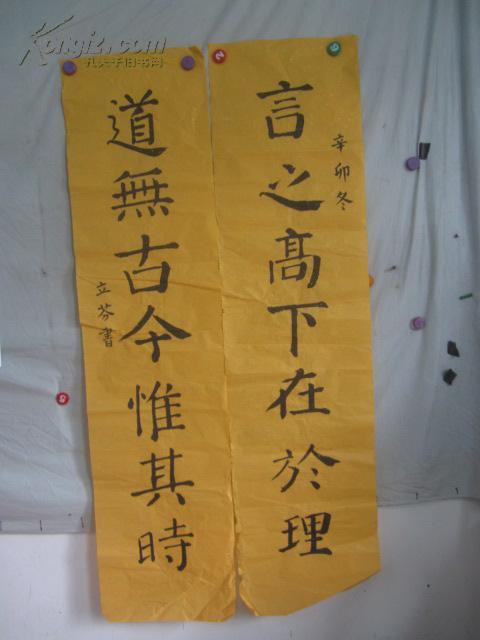 言之髙下在於理
辛卯冬
道無古今惟其時
立芬書
Kongfz.com
孔夫子旧书网